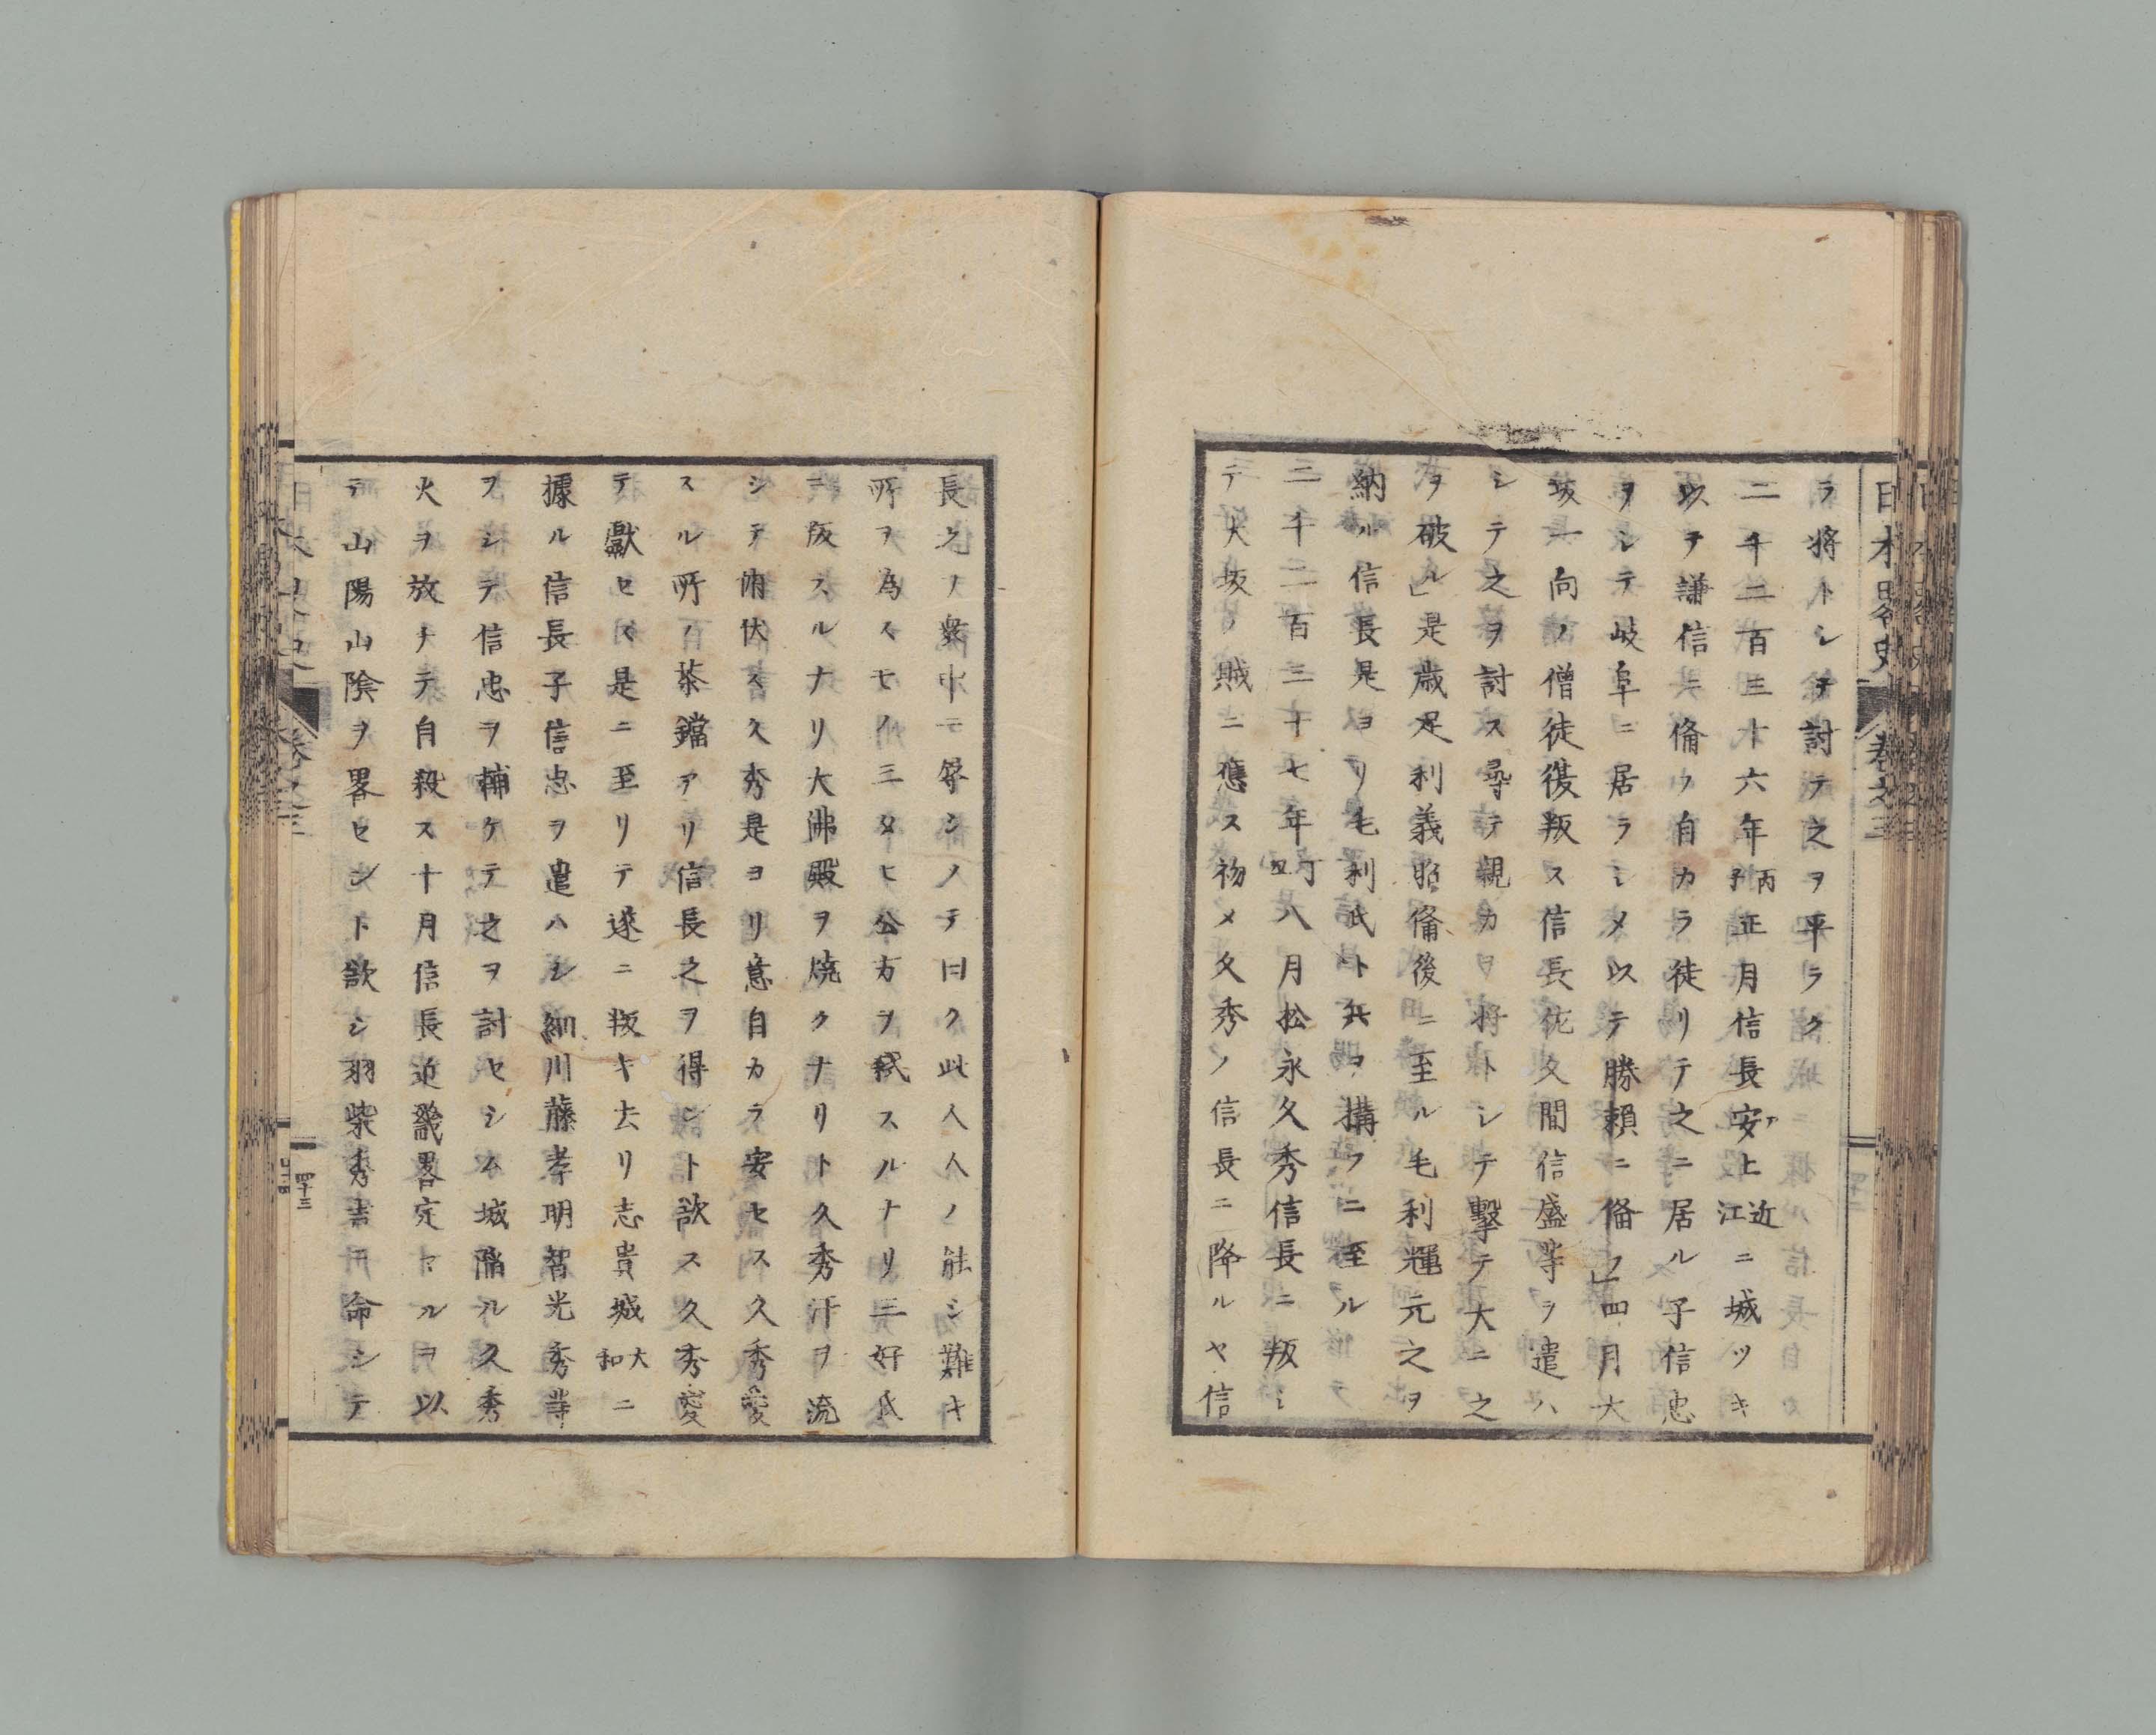 日本畧史 卷之三
ラ將トシ餘テ討テ之ヲ平ラク
二千二百三十六年丙子正月信長安ア土近江ニ城ツキ
以テ謙信ニ備フ自カラ徒リテ之ニ居ル子信忠
ヲシテ岐阜ニ居ラシメ以テ勝賴ニ備フ」四月大
坂一向ノ僧徒復叛ス信長佐久間信盛等ヲ遣ハ
シテ之ヲ討ス尋テ親カラ將トシテ擊テ大ニ之
ヲ破ル」是歲足利義昭備後ニ至ル毛利輝元之ヲ
納ル信長是ヨリ毛利氏ト兵ヲ搆フニ至ル
二千二百三十七年丁丑八月松永久秀信長ニ叛シ
テ大坂ノ賊ニ應ス初メ久秀ノ信長ニ降ルヤ信
長之ノ衆中ニ辱シメテ曰ク此人人ノ能シ難キ
所ヲ為スモノ三タヒ公方ヲ弑スルナリ三好氏
ニ叛スルナリ大佛殿ヲ燒クナリト久秀汗ヲ流
シテ俯伏ス久秀是ヨリ意自カラ安セス久秀愛
スル所ノ茶鐺アリ信長之ヲ得ント欲ス久秀愛
テ獻セス是ニ至リテ遂ニ叛キ去リ志貴城大和ニ
據ル信長子信忠ヲ遣ハシ細川藤孝明智光秀等
ヲシテ信忠ヲ輔ケテ之ヲ討セシム城陷ル久秀
火ヲ放チテ自殺ス十月信長近畿畧定マルヲ以
テ山陽山陰ヲ畧セント欲シ羽柴秀吉ニ命シテ
日本畧史 卷之三
四十三